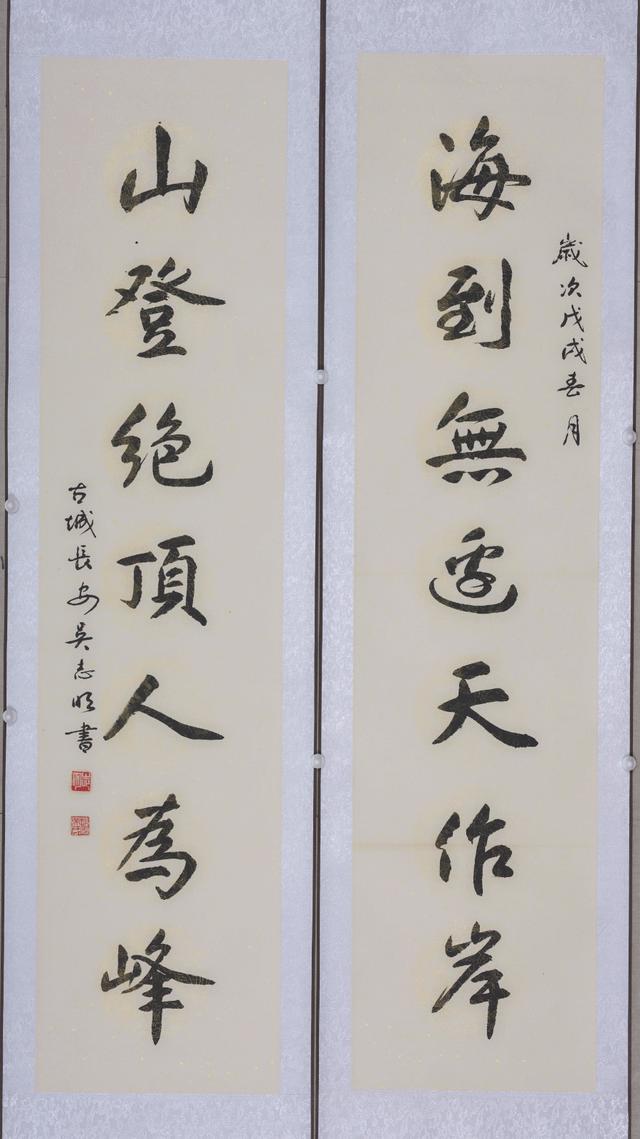 海到無邊天作岸
歲次戊戌春月
山登絕頂人為峰
古城長安吳志明書